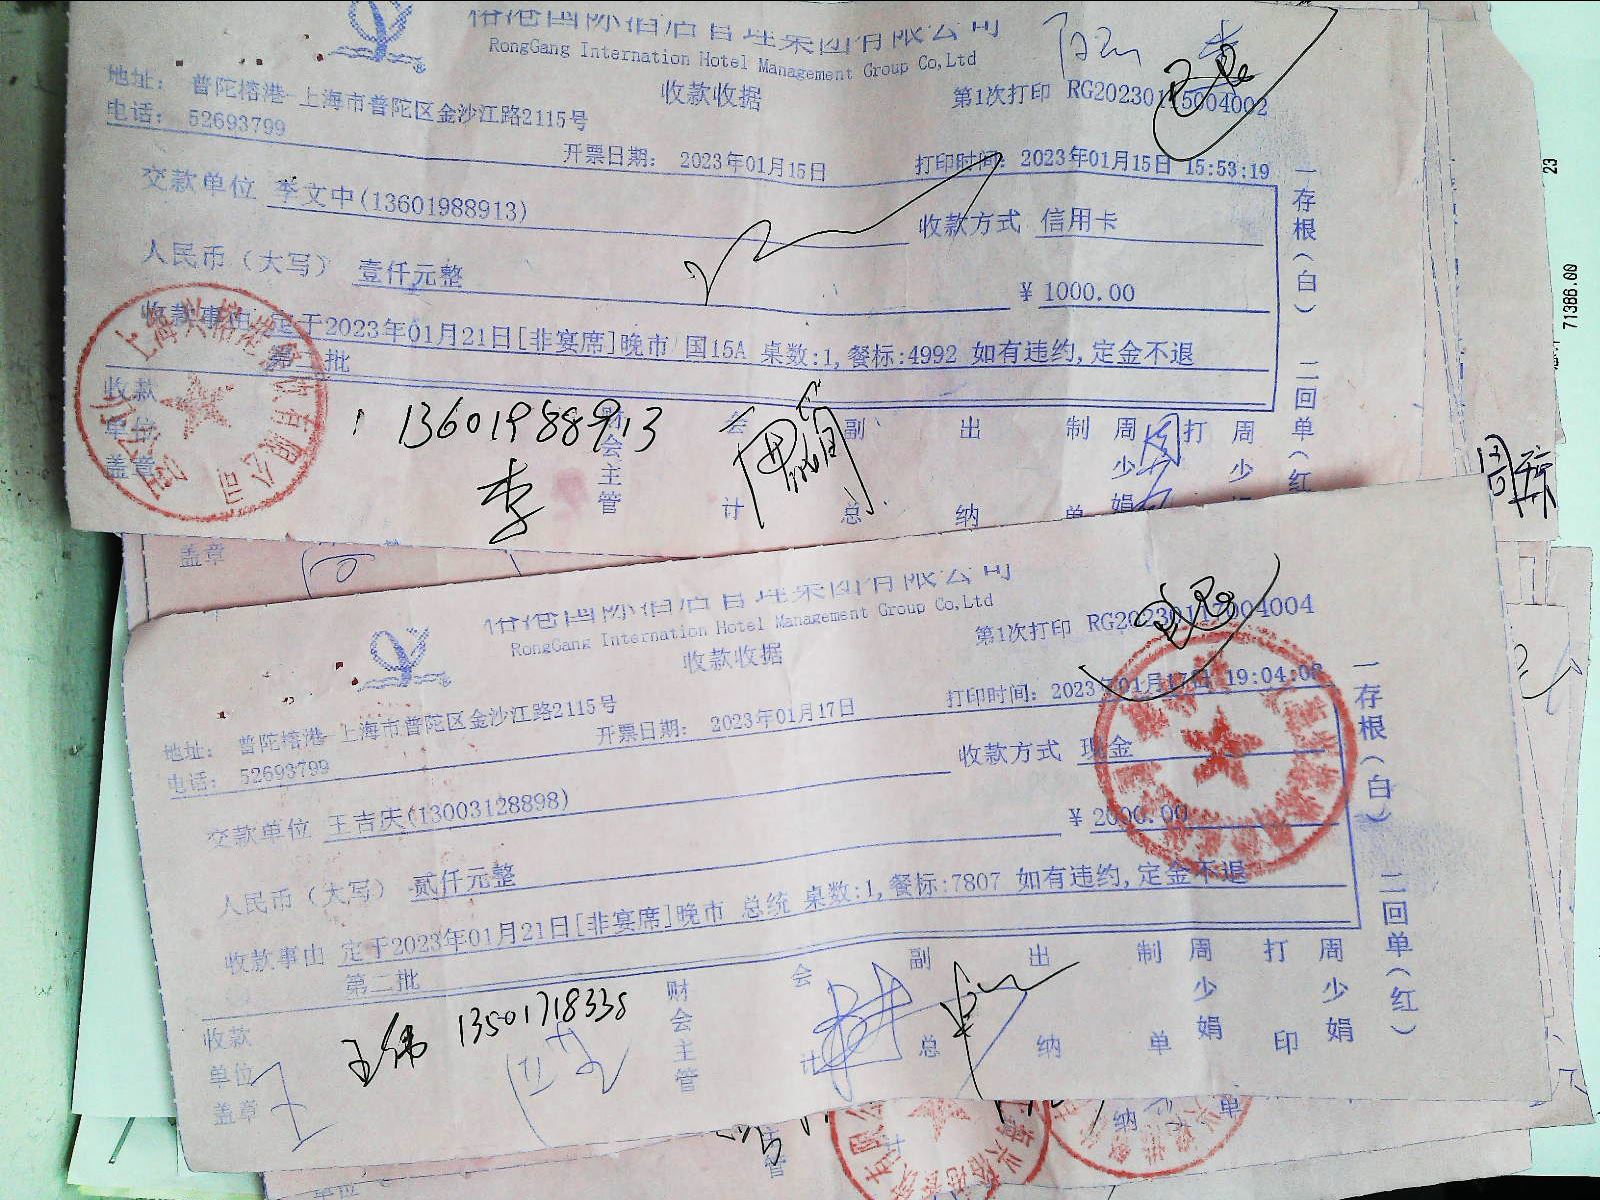 榕港国际酒店管理集团有限公司
RongGang Internation Hotel Management Group Co,Ltd
收款收据
第1次打印 RG20230115004002
地址: 普陀榕港-上海市普陀区金沙江路2115号
电话: 52693799
开票日期: 2023年01月15日
打印时间: 2023年01月15日 15:53:19
交款单位 李文中(13601988913)
收款方式 信用卡
人民币(大写) 壹仟元整
¥ 1000.00
收款事由 定于2023年01月21日[非宴席]晚市 国15A 桌数:1,餐标:4992 如有违约,定金不退
第二批
收款单位盖章
13601988913
李
财会主管
会计
副总
出纳
制单
周少娟
打
周少
一存根(白) 二回单(红
23
71388.00
盖章
榕港国际酒店管理集团有限公司
RongGang Internation Hotel Management Group Co,Ltd
收款收据
第1次打印 RG20230117004004
地址: 普陀榕港-上海市普陀区金沙江路2115号
电话: 52693799
开票日期: 2023年01月17日
打印时间: 2023年01月17日 19:04:08
交款单位 王吉庆(13003128898)
收款方式 现金
人民币(大写) 贰仟元整
¥ 2000.00
收款事由 定于2023年01月21日[非宴席]晚市 总统 桌数:1,餐标:7807 如有违约,定金不退
第二批
收款单位盖章
王伟 13501718338
财会主管
会计
副总
出纳
制单
周少娟
打印
周少娟
一存根(白) 二回单(红)
纳
单